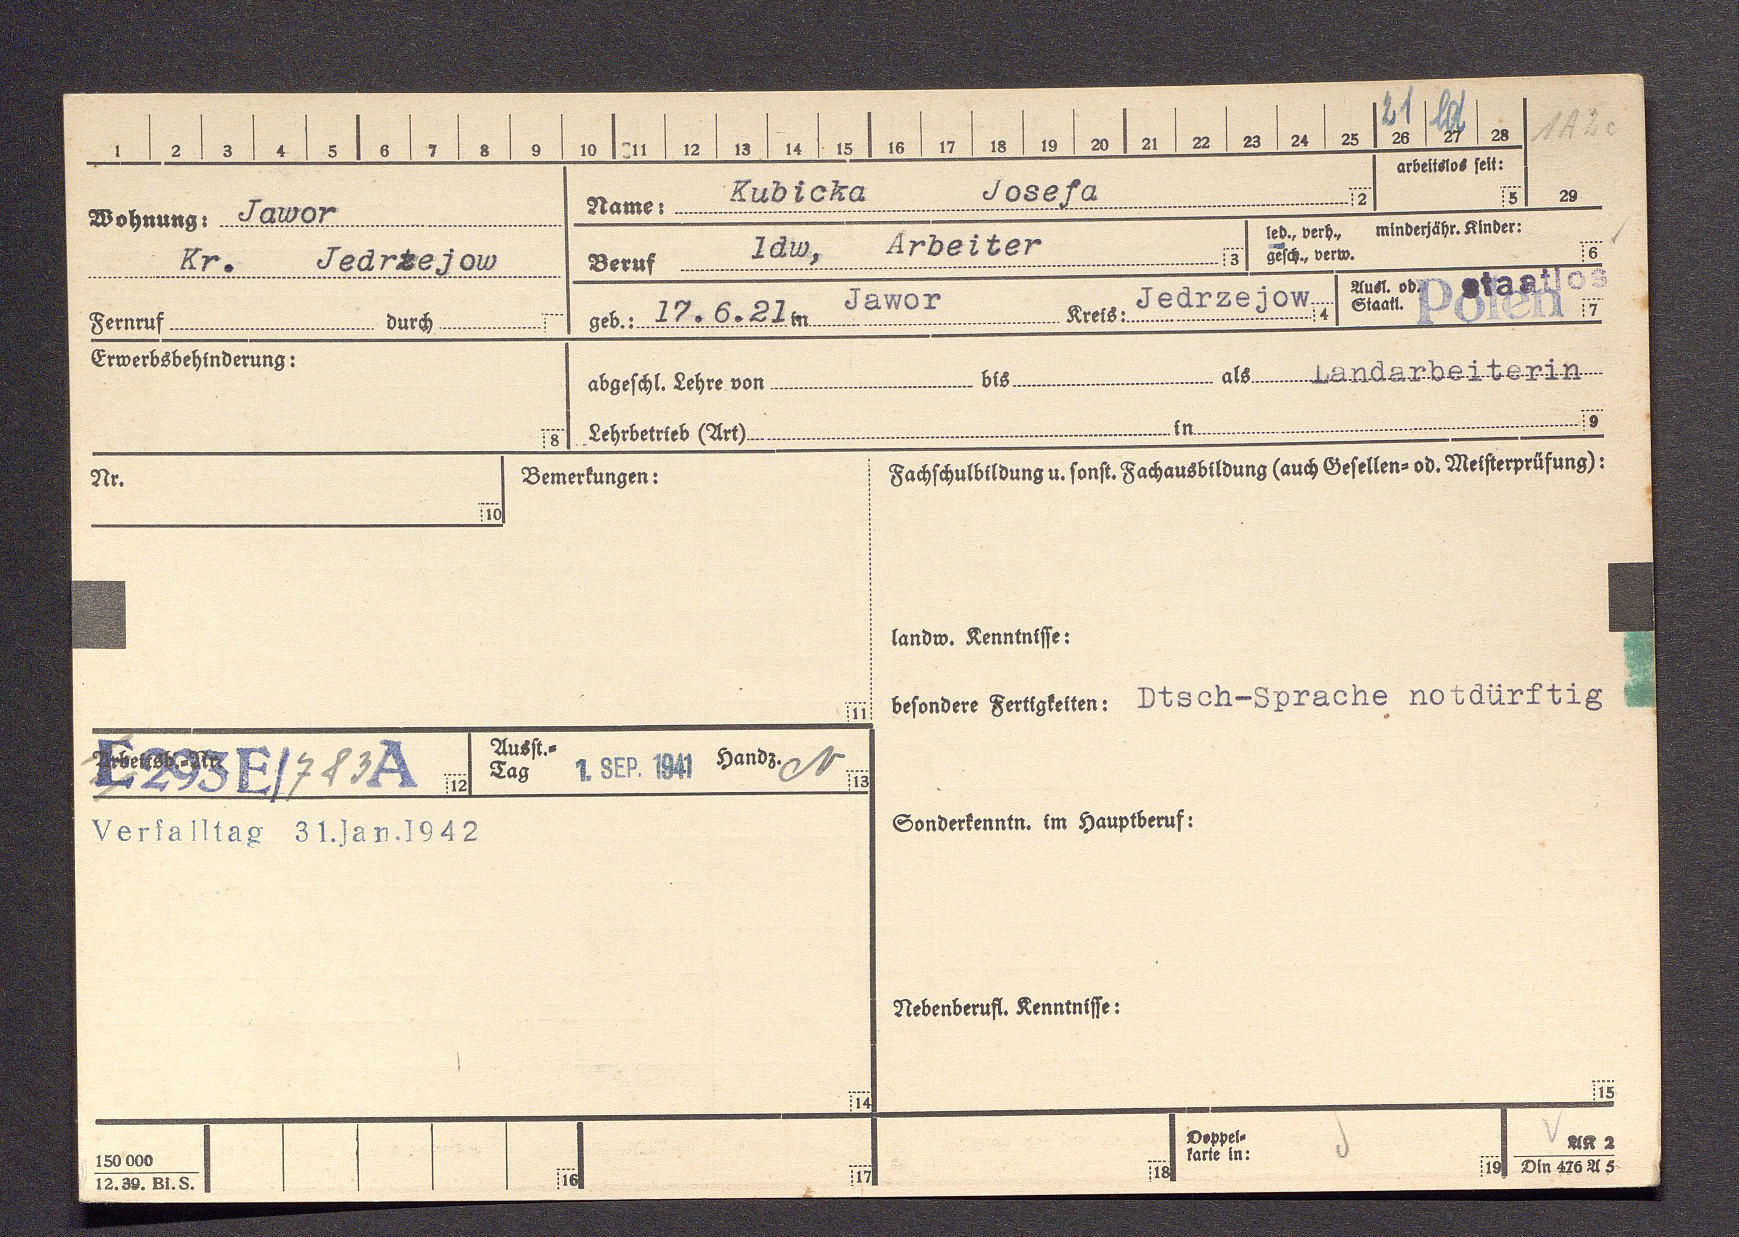 21 ld
1 2 3 4 5 6 7 8 9 10 11 12 13 14 15 16 17 18 19 20 21 22 23 24 25 26 27 28 1A2c
arbeitslos seit:
5 29
Wohnung: Jawor
Kr. Jedrzejow
Fernruf durch
Name: Kubicka Josefa 2
Beruf ldw, Arbeiter 3
led., verh., minderjähr. Kinder:
gesch., verw. 6
geb.: 17.6.21 in Jawor Kreis: Jedrzejow 4
Ausl. od. staatlos
Staatl. Polen 7
Erwerbsbehinderung:
8
abgeschl. Lehre von bis als Landarbeiterin
Lehrbetrieb (Art) in 9
Nr.
10
Bemerkungen:
11
Fachschulbildung u. sonst. Fachausbildung (auch Gesellen= od. Meisterprüfung):
landw. Kenntnisse:
besondere Fertigkeiten: Dtsch-Sprache notdürftig
Arbeitsb.-Nr. E293E/783A 12
Ausst.=
Tag 1. SEP. 1941 Handz. 13
Verfalltag 31.Jan.1942
14
Sonderkenntn. im Hauptberuf:
Nebenberufl. Kenntnisse:
15
150 000
12. 39. Bl. S.
16 17 18
Doppel=
karte in: 19
AK 2
Din 476 A 5